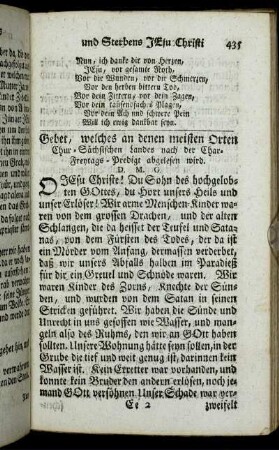 und Sterbens JEsu Christi 435
Nun, ich danke dir von Herzen,
JEsu, vor gesamte Noth,
Vor die Wunden, vor die Schmerzen,
Vor den herben bittern Tod,
Vor dein Zittern, vor dein Zagen,
Vor dein tausendfaches Plagen,
Vor dein Ach und schwere Pein
Will ich ewig dankbar seyn.
Gebet, welches an denen meisten Orten
Chur-Sächsischen Landes nach der Char-
Freytags-Predigt abgelesen wird.
D. M. G.
O JEsu Christe! Du Sohn des hochgelob-
ten GOttes, du Hort unsers Heils und
unser Erlöser! Wir arme Menschen-Kinder wa-
ren von dem grossen Drachen, und der alten
Schlangen, die da heisset der Teufel und Sata-
nas, von dem Fürsten des Todes, der da ist
ein Mörder vom Anfang, dermassen verderbet,
daß wir unsers Abfalls halben im Paradieß
für dir ein Greuel und Schnöde waren. Wir
waren Kinder des Zorns, Knechte der Sün-
den, und wurden von dem Satan in seinen
Stricken geführet. Wir haben die Sünde und
Unrecht in uns gesoffen wie Wasser, und man-
geln also des Ruhms, den wir an GOtt haben
sollten. Unsere Wohnung hätte seyn sollen, in der
Grube die tief und weit genug ist, darinnen kein
Wasser ist. Kein Erretter war vorhanden, und
konnte kein Bruder den andern erlösen, noch je-
mand GOtt versöhnen Unser Schade war ver-
Ee 2 zweifelt